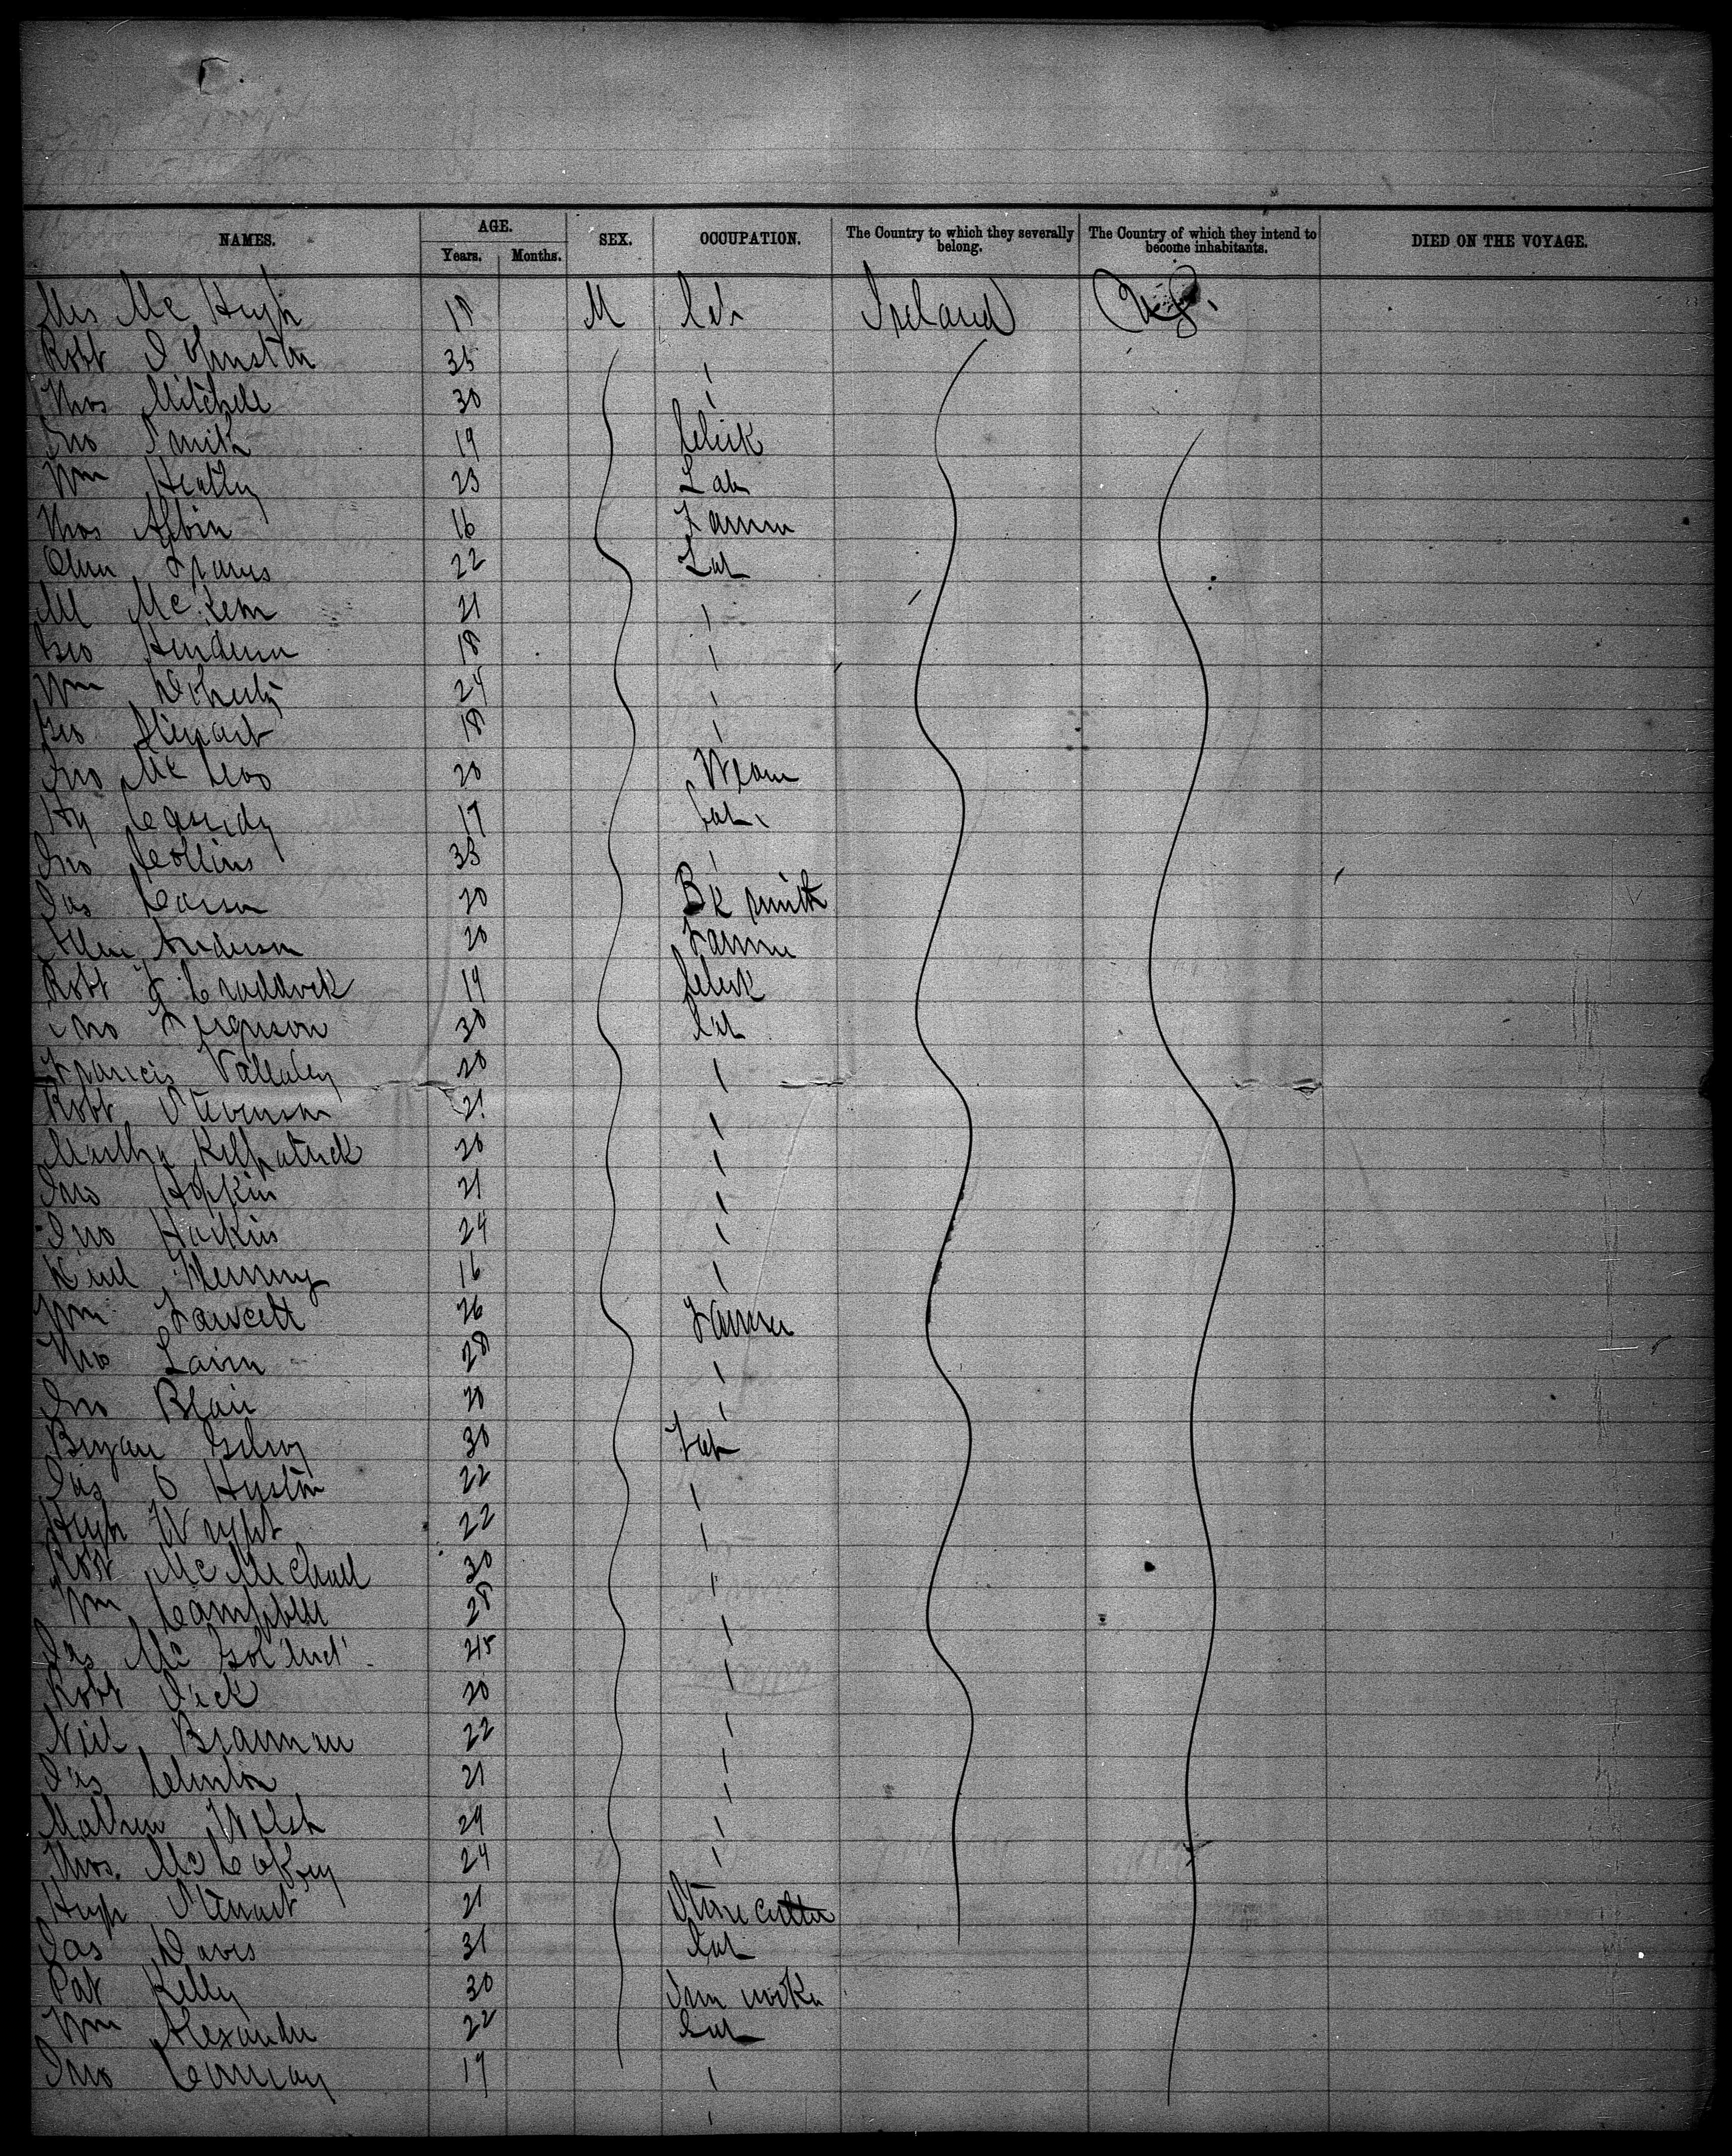 NAMES. AGE. SEX. OCCUPATION. The Country to which they severally belong. The Country of which they intend to become inhabitants. DIED ON THE VOYAGE.
Years. Months.
Mc Hugh M Lab Ireland U.S.
Robt Johnston 35 "
Thos Mitchell 30 "
Jno Smith 19 Clerk
Wm Heatley 23 Lab
Thos Albin 16 Farmer
22 Lab
M 21 "
Geo Henderson 18 "
Wm Doherty 24 "
Geo Stewart 18 "
Jno Mc 20
Hy Cassidy 17 Lab
Jno Collins 33 "
Jas Carson 20 Bk smith
Allen Anderson 20 Farmer
Robt G Craddock 19 Clerk
Jno Ferguson 30 Lab
Francis Vallaley 20 "
Robt Stevenson 21 "
Martha Kilpatrick 20 "
Jno Hopkin 21 "
Jno Harkins 24 "
Fleming 16 "
Wm Fawcett 26 Farmer
28 "
Jno Blair 20 "
Bryan Gilroy 30 Lab
Jas O Huston 22 "
Hugh Wright 22 "
Robt McMichael 30 "
Wm Campbell 28 "
Jas Mc 45 "
Robt Dick 20 "
Neil Brannan 22 "
Jas Clinton 21 "
Mathew Walsh 29 "
Thos. McCafrey 24 "
Hugh Stewart 21 Stone cutter
Jas Davis 31 Lab
Pat Kelly 30 Iron worker
Wm Alexander 22 Lab
Jno 17 "
"